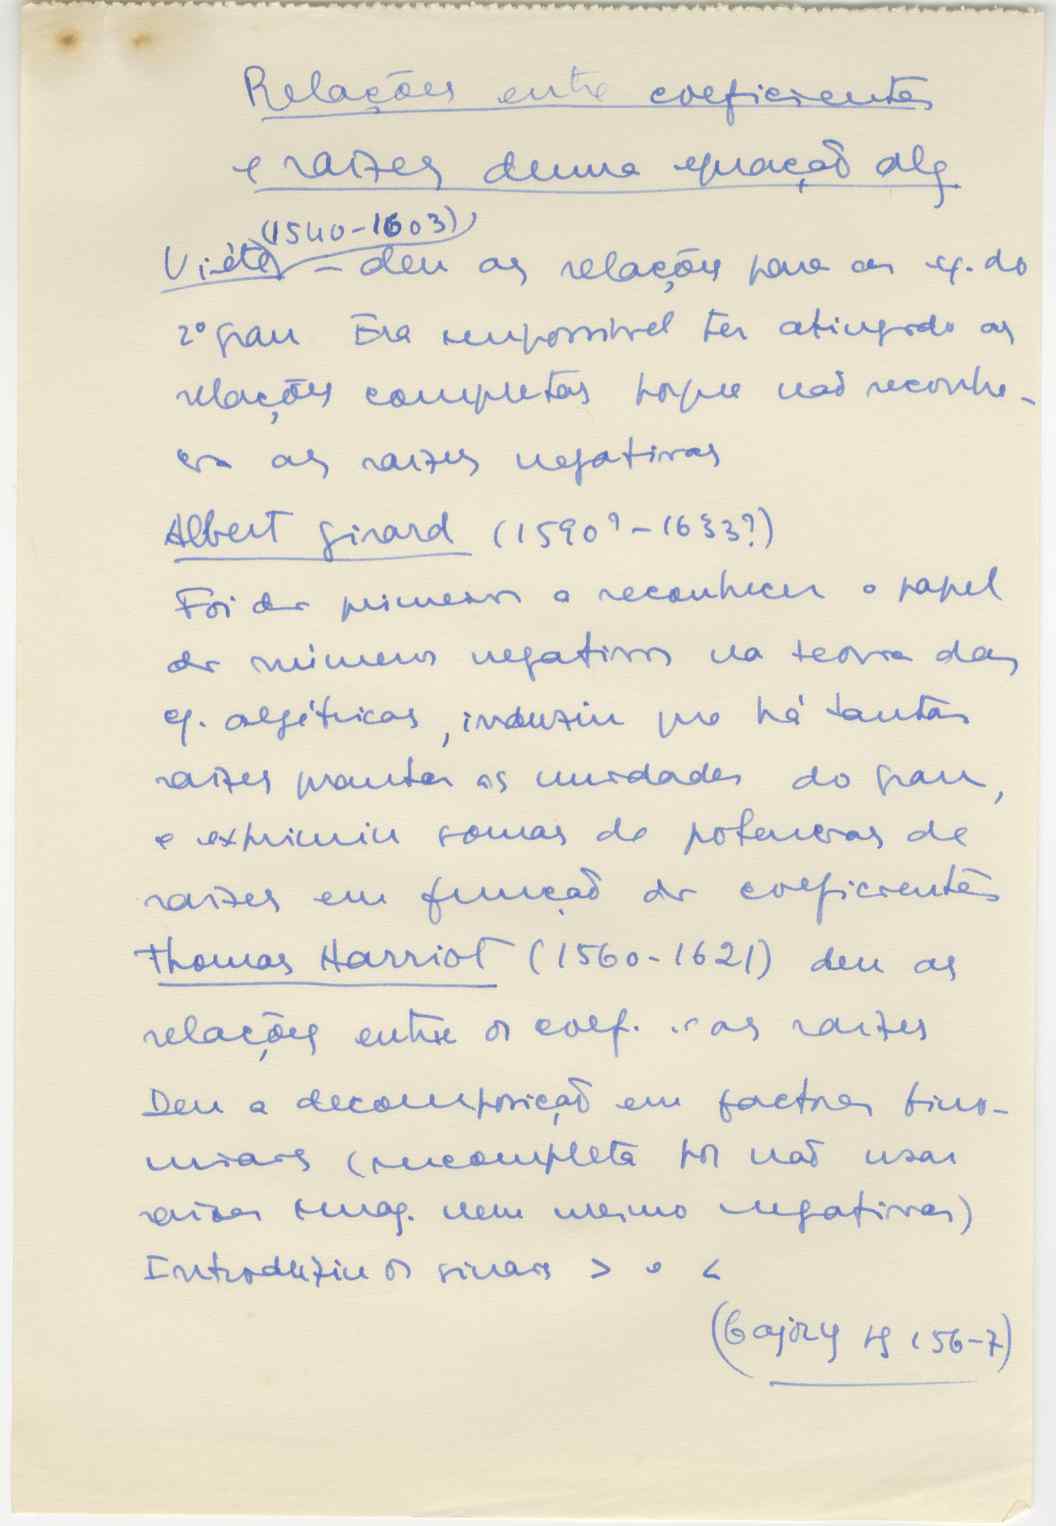 Relações entre coeficientes
e raizes duma equação alg
(1540-1603)
Viète - deu as relações para as eq. do
2º grau Era impossivel ter atingido as
relações completas porque não reconhe-
cia as raizes negativas
Albert Girard (1590?-1633?)
Foi dos primeiros a reconhecer o papel
dos números negativos na teoria das
eq. algébricas, induziu que há tantas
raizes quantas as unidades do grau,
e exprimiu somas de potencias de
raizes em função dos coeficientes
Thomas Harriot (1560-1621) deu as
relações entre os coef. e as raizes
Deu a decomposição em factores bino-
miais (incompleta por não usar
raizes imag. nem mesmo negativas)
Introduziu os sinais > e <
(Cajory pg 156-7)